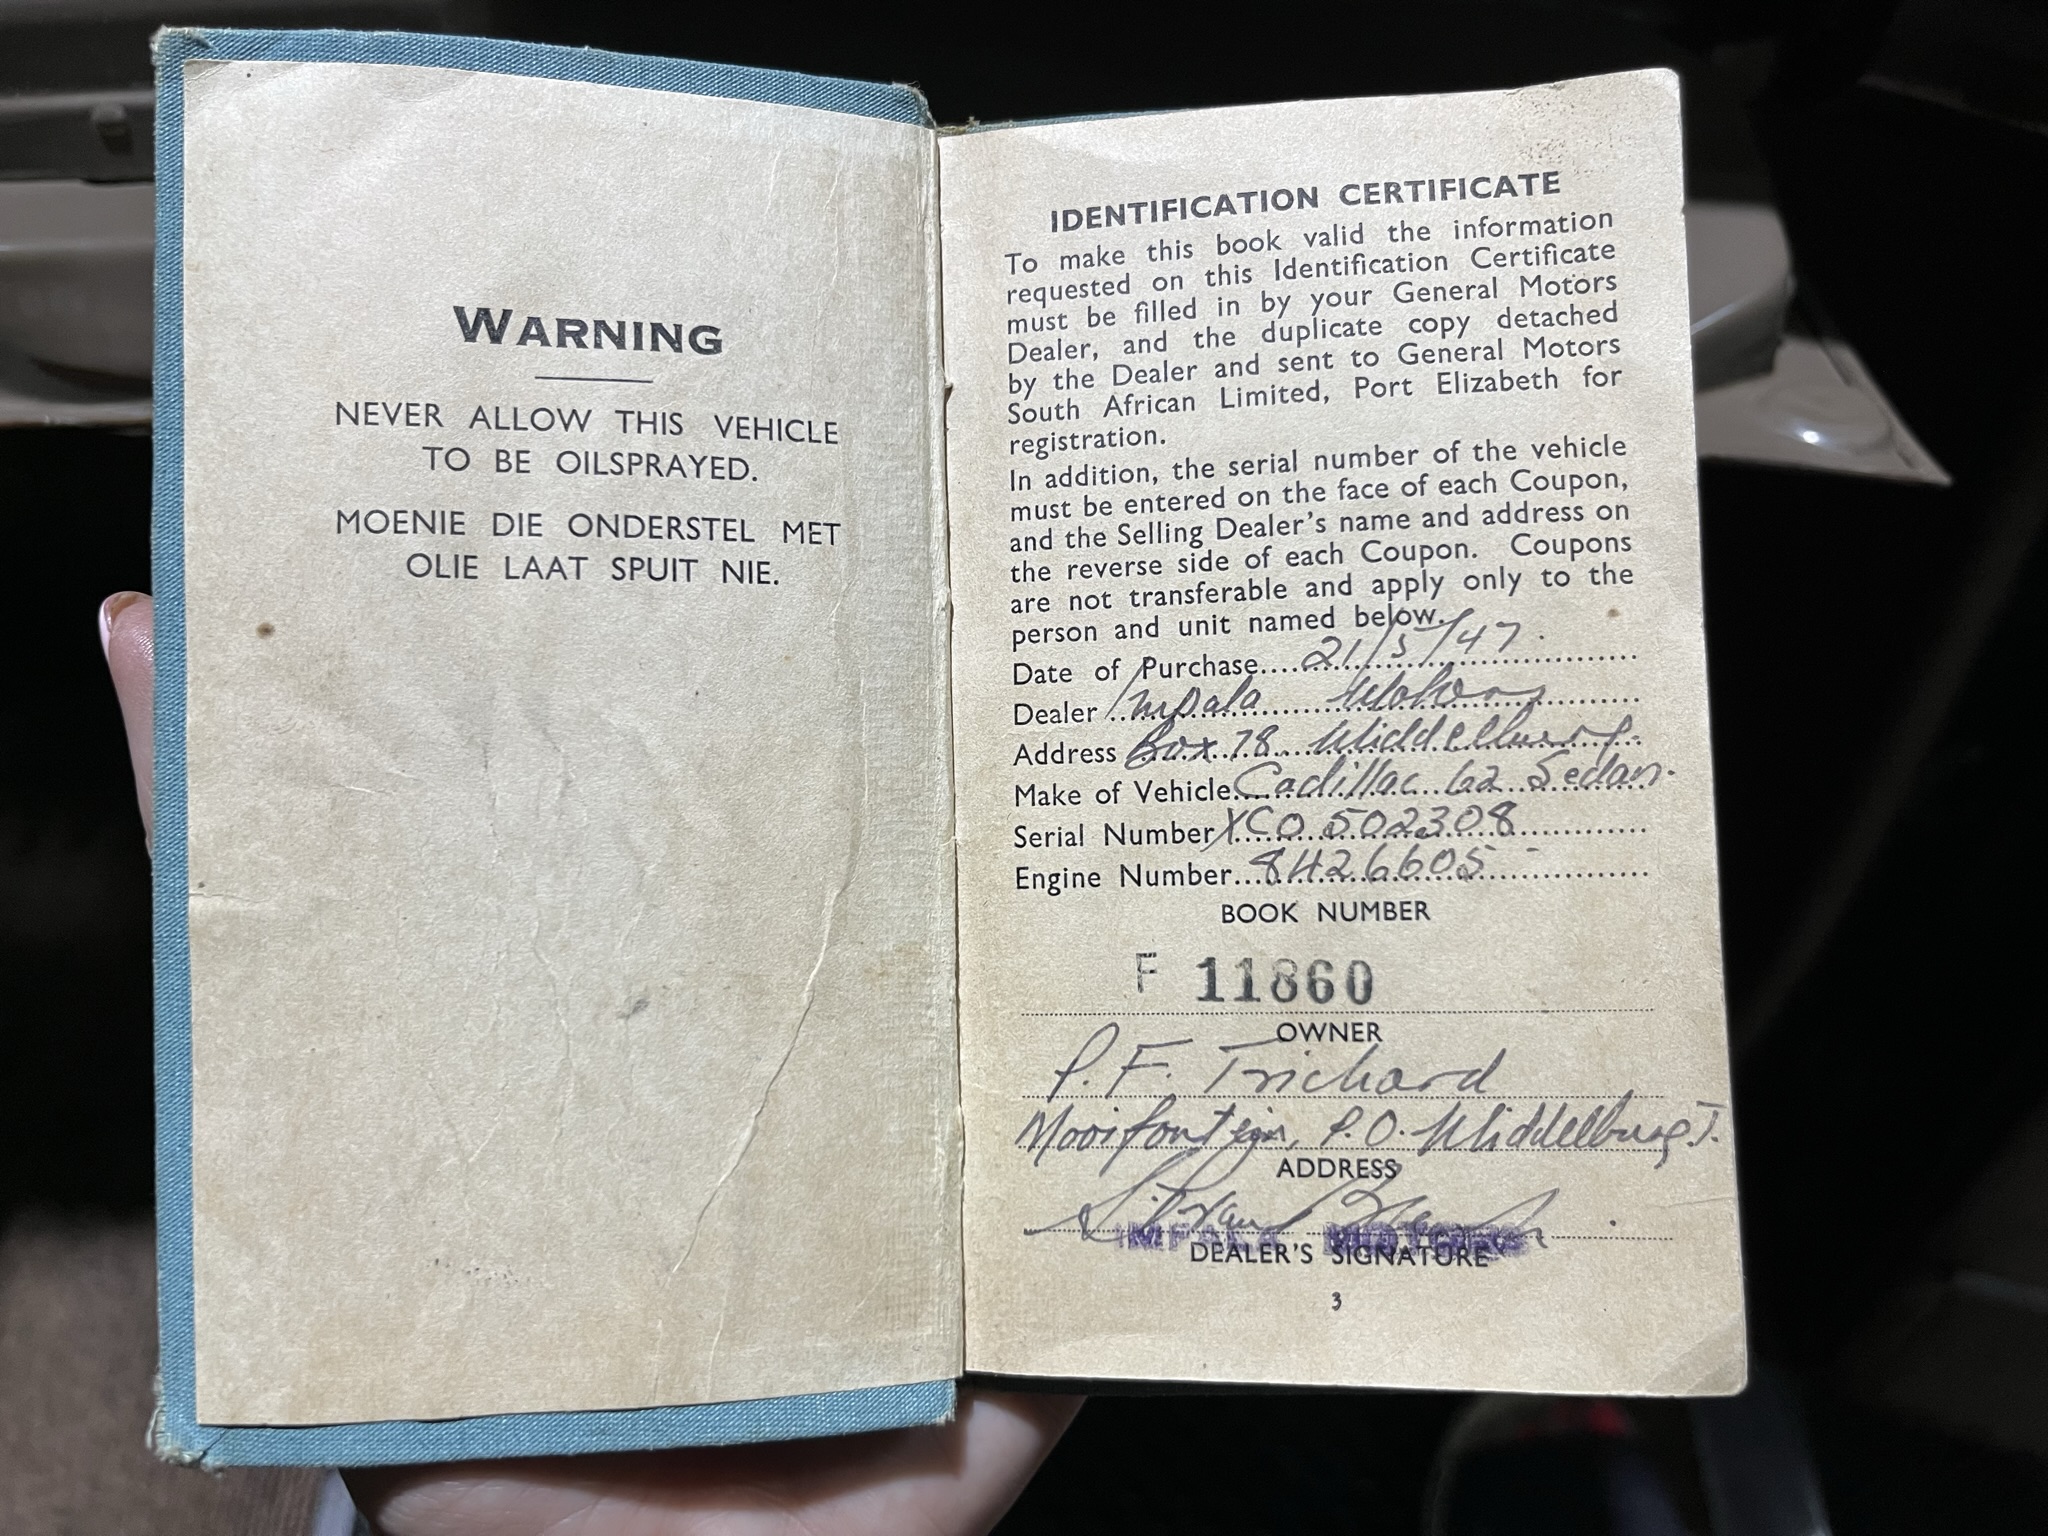 WARNING
NEVER ALLOW THIS VEHICLE
TO BE OILSPRAYED.
MOENIE DIE ONDERSTEL MET
OLIE LAAT SPUIT NIE.
IDENTIFICATION CERTIFICATE
To make this book valid the information
requested on this Identification Certificate
must be filled in by your General Motors
Dealer, and the duplicate copy detached
by the Dealer and sent to General Motors
South African Limited, Port Elizabeth for
registration.
In addition, the serial number of the vehicle
must be entered on the face of each Coupon,
and the Selling Dealer's name and address on
the reverse side of each Coupon. Coupons
are not transferable and apply only to the
person and unit named below.
Date of Purchase....21/5/47.
Dealer Impala Motors
Address Box 78 Middelburg.
Make of Vehicle Cadillac 62 Sedan.
Serial Number XCO 502308
Engine Number 8H26605
BOOK NUMBER
F 11860
OWNER
P. F. Trichard
Mooifontein, P.O. Middelburg. T.
ADDRESS
IMPALA MOTORS
DEALER'S SIGNATURE
3